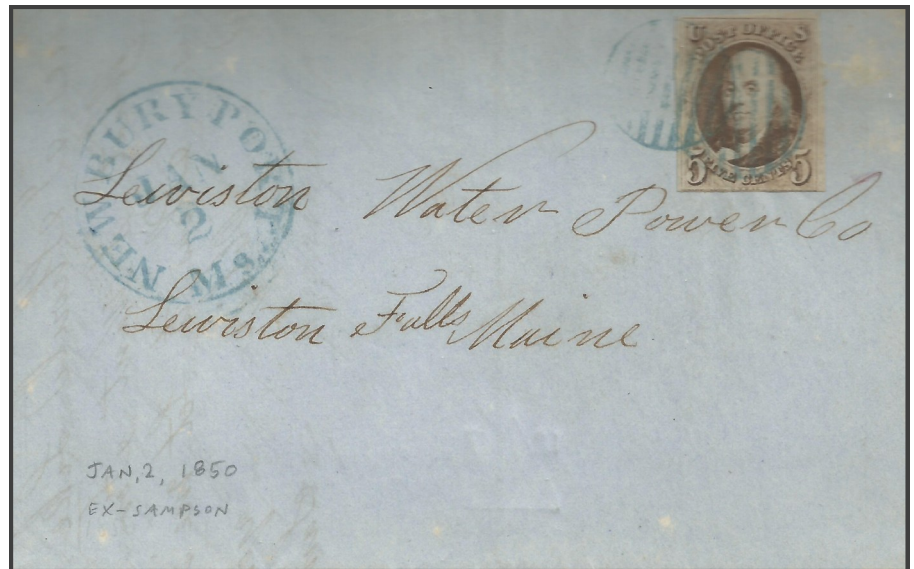 U S
POST OFFICE
5 FIVE CENTS 5
NEWBURYPORT Ms
JAN
2
Lewiston Water Power Co
Lewiston Falls Maine
JAN, 2, 1850
EX-SAMPSON